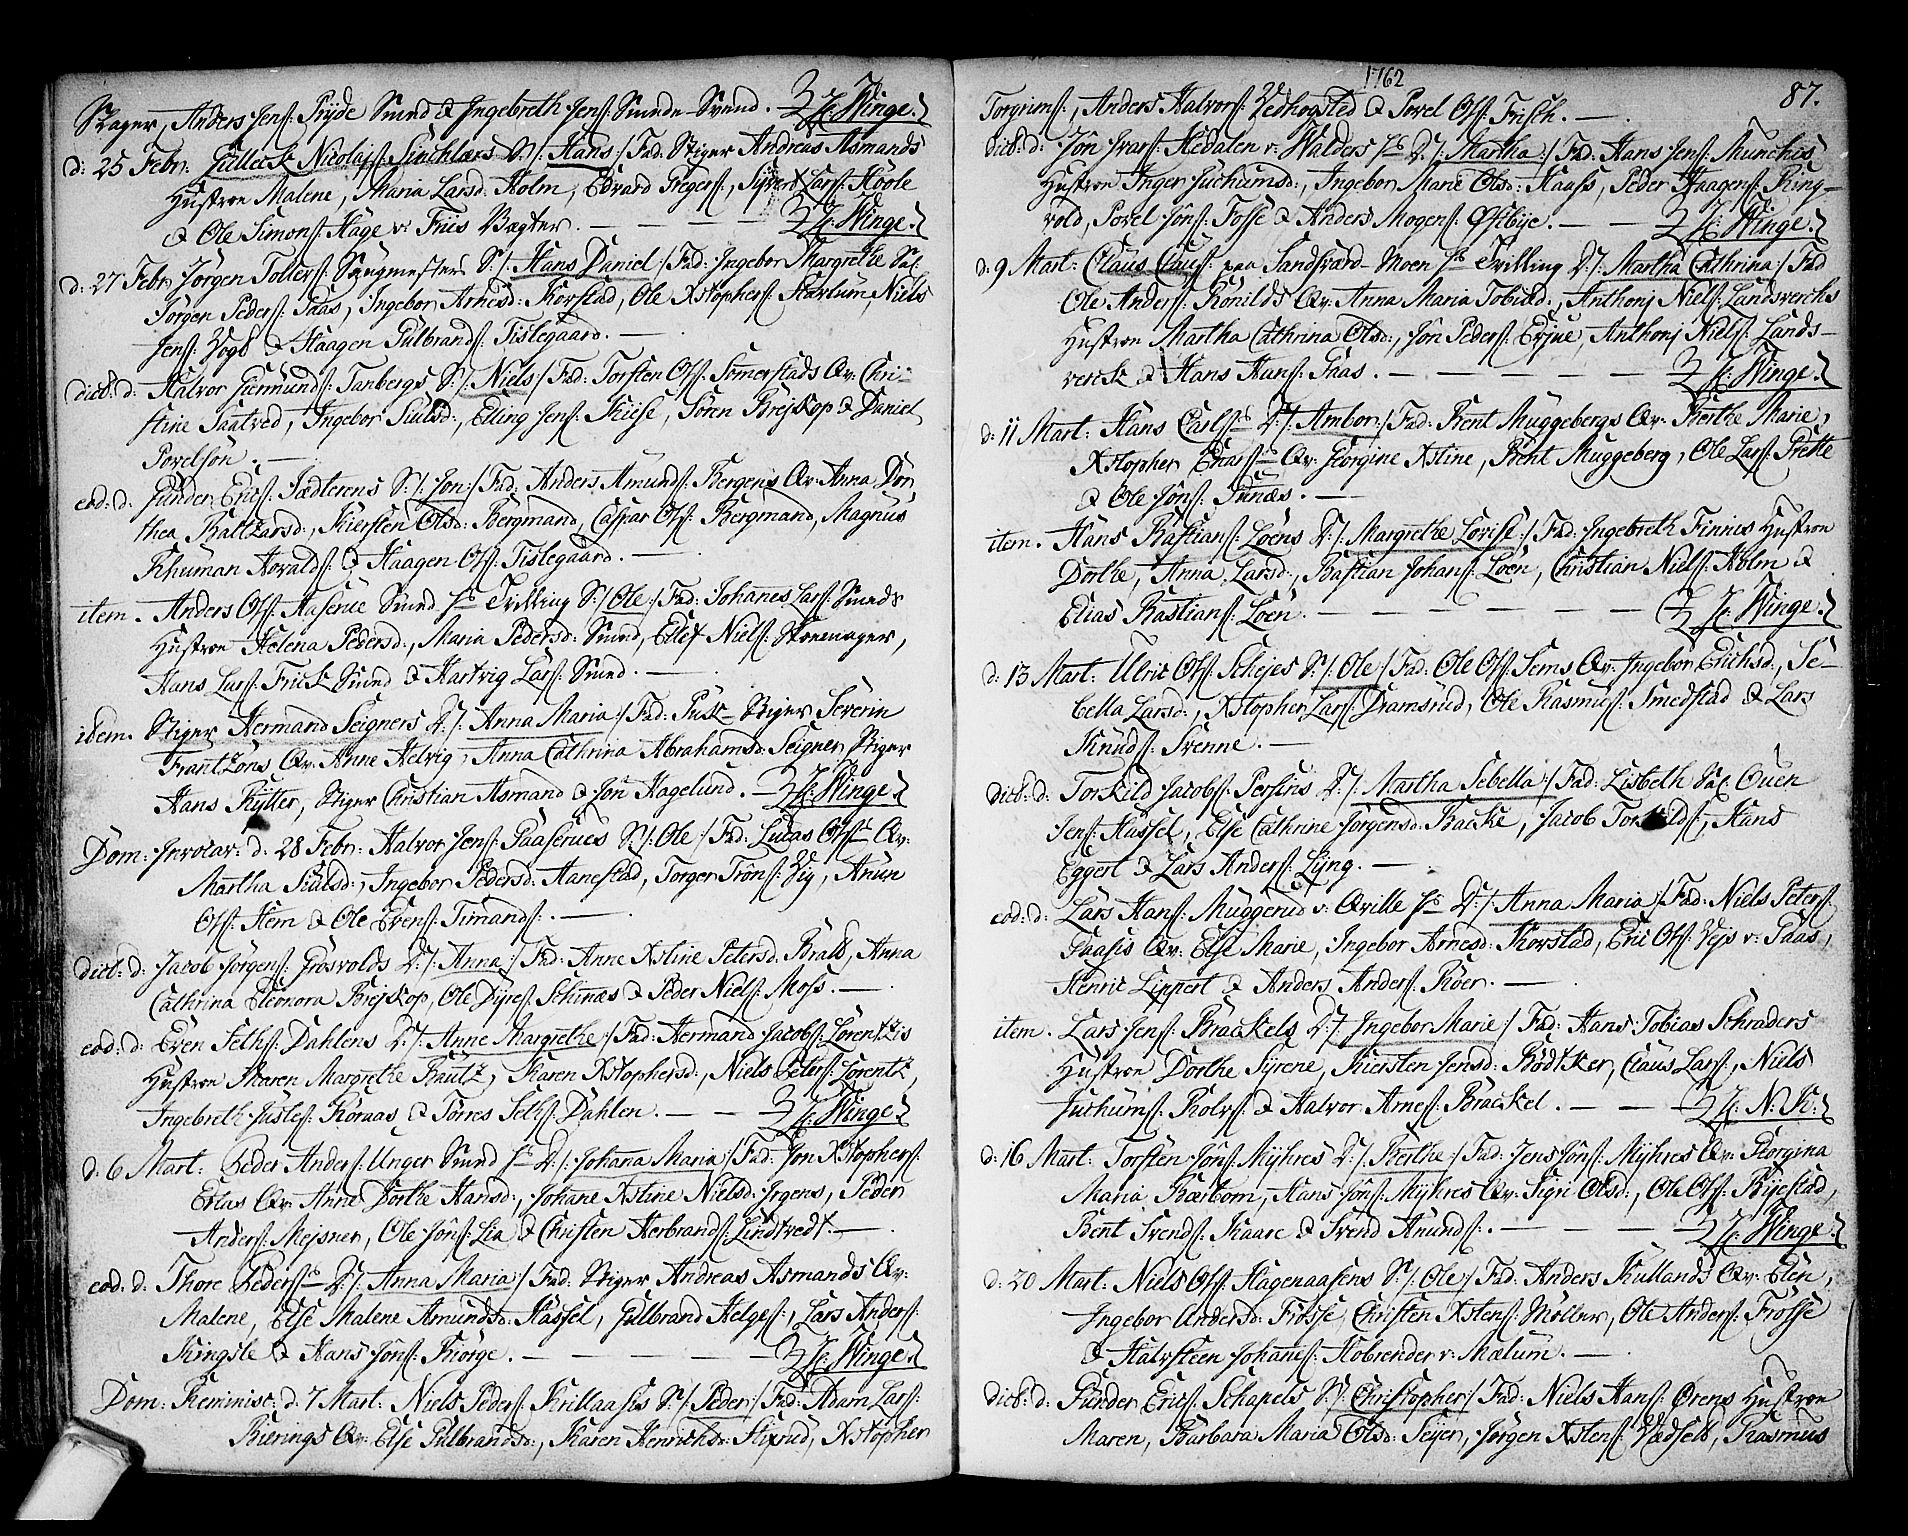 Stager, Anders Jens: Ryde Smed & Ingebreth Jens: Smeds Svend. H: Winge.
d: 25 Febr: Gulleck Nicolajs: Sinchlars S: /: Hans :/ Fad: Stiger Andreas Asmands
Hustroe Malene, Maria Larsd: Holm, Edvard Gregers:, Syvert Lars: Hoole
& Ole Simons: Hage v: Friis Vægter. — — — H: Winge.
d: 27 Febr: Jörgen Tollefs: Sangmesters S: /: Hans Daniel :/ Fad: Ingebor Margrethe Sal:
Jörgen Peders: Paas, Ingebor Arnesd: Korstad, Ole Xstophers: Skarlum, Niels
Jens: Vogt & Haagen Gulbrands: Tislegaard. —
dict: d: Halvor Gurmunds: Tanbergs S: /: Niels :/ Fad: Torsten Ols: Somerstads Qv: Chri-
stine Saatved, Ingebor Siulsd:, Elling Jens: Kiise, Sören Brejskop & Daniel
Povelsön. —
eod: d: Gunder Erics: Jædterens S: /: Jon :/ Fad: Anders Amunds: Bergens Qv: Anna Dor
thea Baltzarsd:, Kiersten Olsd: Bergmand, Caspar Ols: Bergmand, Magnus
Thuman Hovalds: & Haagen Ols: Tislegaard. —
item. Anders Ols: Hasenie Smed Hs Tvilling S: /: Ole :/ Fad: Johanes Lars: Smeds
Hustroe Helena Pedersd:, Maria Pedersd: Smed, Edlef Niels: Skoemager,
Hans Lars: Frick Smed & Hartvig Lars: Smed. —
idem. Stiger Hermand Seigners D: /: Anna Maria :/ Fad: Puk-Stiger Severin
Frantzöns Qv: Anne Helvig, Anna Cathrina Abrahamsd: Seigner, Stiger
Hans Rytter, Stiger Christian Asmand & Jon Hagelund. — H: Winge.
Dom: Invocav: d: 28 Febr: Halvor Jens: Paaserues S: /: Ole :/ Fad: Lucas Ols: Qv:
Martha Siulsd:, Ingebor Pedersd: Hanestad, Torger Tröns: Vig, Anun
Ols: Hem & Ole Evens: Timands:. —
dict: d: Jacob Jörgens: Grosvolds D: /: Anna :/ Fad: Anne Xstine Petersd: Brat, Anna
Cathrina Eleonora Brejskop, Ole Dyres: Schinæs & Peder Niels: Moss. —
eod: d: Even Seths: Dahlens D: /: Anne Margrethe :/ Fad: Hermand Jacobs: Lorentzis
Hustroe Karen Margrethe Bautz, Karen Xstophersd:, Niels Peters: Lorentz,
Ingebreth Justes: Roraas & Torres Seths: Dahlen. — — H: Winge.
d: 6 Mart: Peder Anders: Unger Smed Hs D: /: Johana Maria :/ Fad: Jon Xstophers:
Enas Qv: Anne Dorthe Hansd:, Johane Xstine Nielsd: Irgens, Peder
Anders: Mejsner, Ole Jöns: Lia & Christen Herbrands: Lindtvedt. —
eod: d: Thore Peders: D: /: Anna Maria :/ Fad: Stiger Andreas Asmands Qv:
Malene, Else Malene Amundsd: Hassel, Gulbrand Helges:, Lars Anders:
Kingsle & Hans Jöns: Biorge. — — — H: Winge.
Dom: Reminisc: d: 7 Mart: Niels Peders: Krillaasis S: /: Peder :/ Fad: Adam Lars:
Bierings Qv: Else Gulbrandsd:, Karen Henrichsd: Stixrud, Xstopher
1762
87.
Torgrims:, Anders Halvors: Vedhogsted & Povel Ols: Frisch. —
dict: d: Jön Ivars: Hedalen v: Walders Hs D: /: Martha :/ Fad: Hans Jens: Munchis
Hustroe Inger Juchumsd:, Ingebor Marie Olsd: Haass, Peder Haagens: Ring-
vold, Povel Jöns: Fosse & Anders Mogens: Östbye. — H: Winge.
d: 9 Mart: Claus Claus: paa Sandsværd-Moen Hs Tvilling D: /: Martha Cathrina :/ Fad
Ole Anders: Ronilds Qv: Anna Maria Tobisd:, Anthonj Niels: Landsverchs
Hustroe Martha Cathrina Olsd:, Jön Peders: Evjue, Anthonj Niels: Lands-
verck & Hans Hans: Paas. — — — H: Winge.
d: 11 Mart: Hans Carls: D: /: Ambor :/ Fad: Bent Muggebergs Qv: Berthe Marie,
Xstopher Enars: Qv: Georgine Xstine, Bent Muggeberg, Ole Lars: Prette
& Ole Jöns: Funæs. —
item. Hans Bastians: Loens D: /: Margrethe Lovise :/ Fad: Ingebreth Finnes Hustroe
Dorthe, Anna Larsd:, Bastian Johans: Loen, Christian Niels: Holm &
Elias Bastians: Loen. — — — H: Winge.
d: 13 Mart: Ulric Ols: Schejes S: /: Ole :/ Fad: Ole Ols: Sems Qv: Ingebor Erichsd:, Se-
bella Larsd:, Xstopher Lars: Dramsrud, Ole Rasmus: Smedstad & Lars
Knuds: Svenne. —
dict: d: Torkild Jacobs: Persins D: /: Martha Sebella :/ Fad: Lisbeth Sal: Ouen
Jens: Hassel, Else Cathrine Jörgensd: Backe, Jacob Torkilds:, Hans
Eggert & Lars Anders: Lyng. —
eod: d: Lars Hans: Muggerud v: Qville Hs D: /: Anna Maria :/ Fad: Niels Peters:
Paasis Qv: Else Marie, Ingebor Arnesd: Korstad, Eric Ols: Vejs v: Paas,
Henric Lippert & Anders Anders: Röer. —
item. Lars Jens: Brackels D: /: Ingebor Marie :/ Fad: Hans Tobias Schraders
Hustroe Dorthe Syrene, Kiersten Jensd: Bödtker, Claus Lars:, Niels
Juchums: Rolv: & Halvor Arnes: Brackel. — — H: N: K:
d: 16 Mart: Torsten Jöns: Myhres D: /: Berthe :/ Fad: Jens Jöns: Myhres Qv: Georgina
Maria Barbom, Hans Jöns: Myhres Qv: Sigri Olsd:, Ole Ols: Byestad,
Bent Svends: Kaare & Svend Anunds:. — — H: Winge.
d: 20 Mart: Niels Ols: Hagenaasens S: /: Ole :/ Fad: Anders Kullands Qv: Elen,
Ingebor Andersd: Frosse, Christen Xstens: Möller, Ole Anders: Frosse
& Halvsteen Johannes: Hobrender v: Mælum. —
dict: d: Gunder Erics: Schapels S: /: Christopher :/ Fad: Niels Hans: Ørens Hustroe
Maren, Barbara Maria Olsd: Sejer, Jörgen Xstens: Vadset, Rasmus